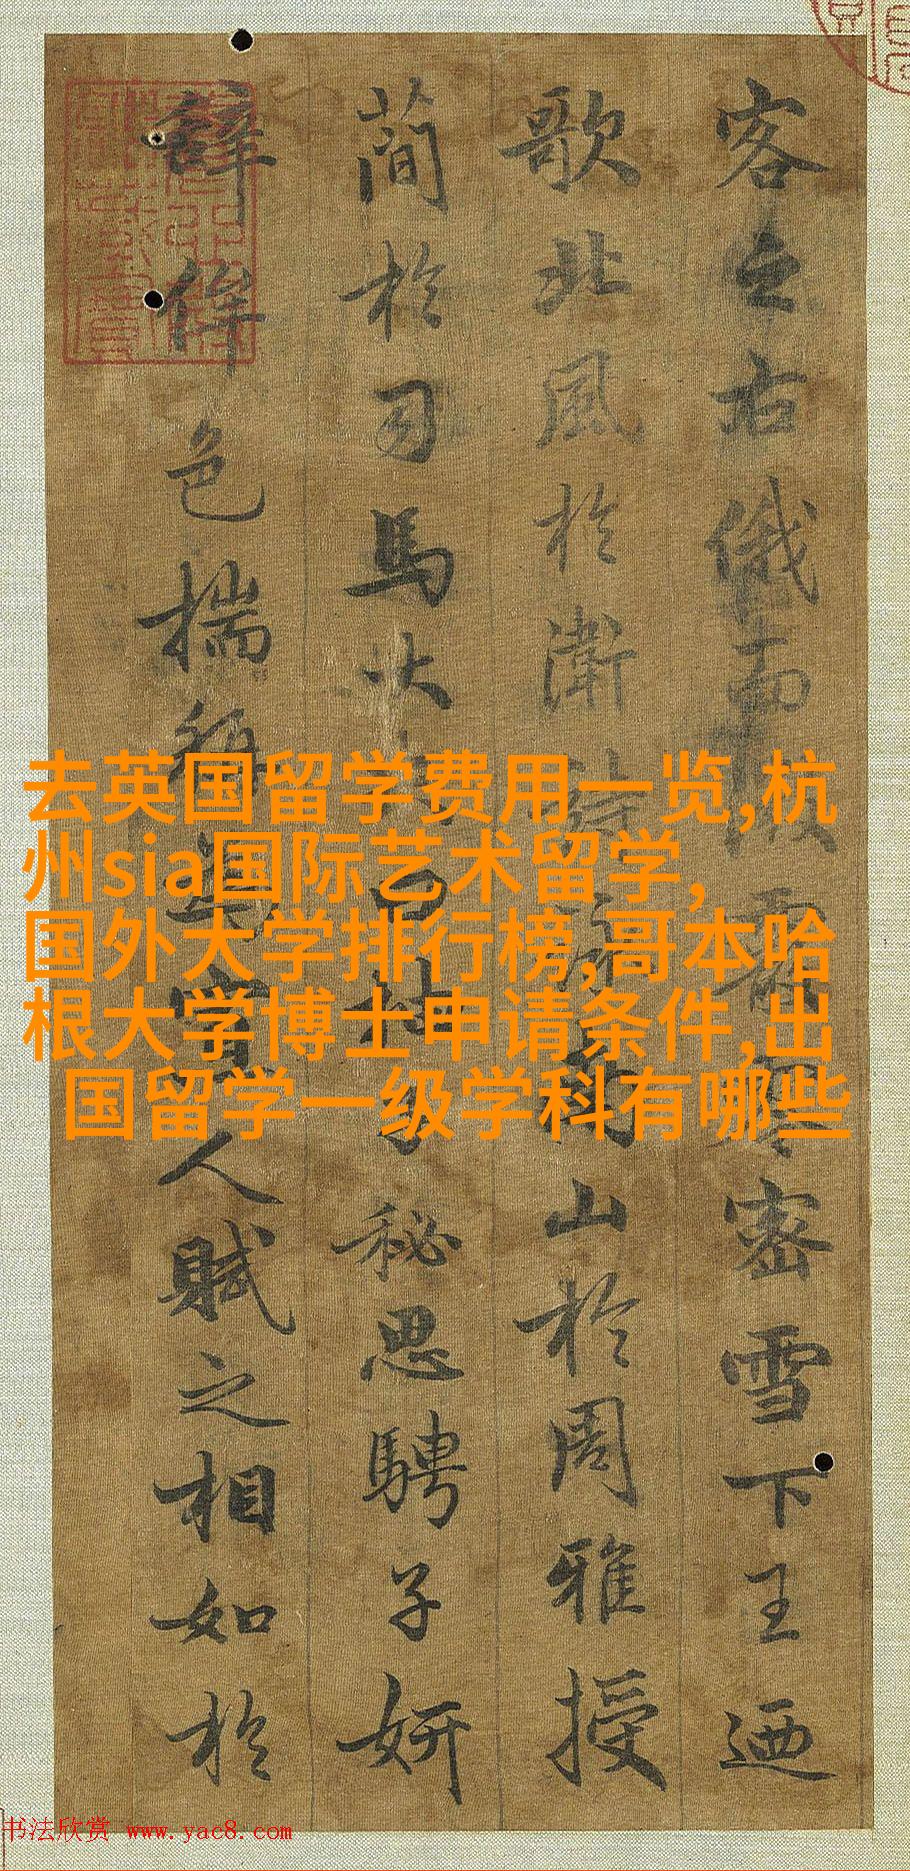 客之右俄而霰密雪下王迺
歌北風於衛詩南山於周雅授
簡於司馬大曰抽秘思騁子妍
辭侔色揣稱人賦之相如於
去英国留学费用一览,杭
州sia国际艺术留学,
国外大学排行榜,哥本哈
根大学博士申请条件,出
国留学一级学科有哪些
书法欣赏 www.yac8.com